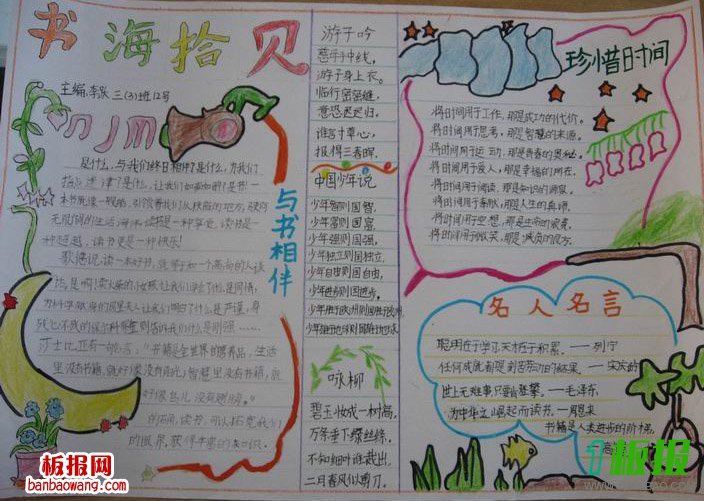 书海拾贝
主编:李泉 三(3)班12号
与书相伴
是什么,与我们终日相伴?是什么,为我们
指点迷津?是什么,让我们如痴如醉?是书!一
本书就像一艘船,引领着我们从狭隘的地方,驶向
无限阔的生活海洋。读书是一种享受,读书是一
种超越,读书更是一种快乐!
歌德说读一本好书,就等于和一个高尚的人谈
话,是啊!卖火柴的女孩让我们学到了什么是同情,
身
残志不残的保尔柯察金则告诉我们什么是刚强……
莎士比亚有一句名言:"书籍是全世界的营养品,生活
里没有书籍,就好像没有阳光;智慧里没有书籍,就
好像鸟儿没有翅膀。"
读书,可以拓宽我们
的眼界,获得丰富的知识。
游子吟
慈母手中线,
游子身上衣。
临行密密缝,
意恐迟迟归。
谁言寸草心,
报得三春晖。
中国少年说
少年智则国智,
少年富则国富,
少年强则国强,
少年独立则国独立,
少年自由则国自由,
少年进步则国进步。
少年胜于欧洲则国胜于欧洲,
少年雄于地球则国雄于地球
咏柳
碧玉妆成一树高,
万条垂下绿丝绦。
不知细叶谁裁出,
二月春风似剪刀。
珍惜时间
将时间用于工作,那是成功的代价。
将时间用于思考,那是智慧的来源。
将时间用于运动,那是青春的奥秘。
将时间用于爱人,那是幸福的所在,
将时间用于阅读,那是知识的源泉,
将时间用于奉献,那是人生的真谛。
将时间用于空想,那是生命的浪费,
将时间用于微笑,那是减负的良方。
名人名言
聪明在于学习,天才在于积累。——列宁
任何成就都是刻苦劳动的结果。——宋庆龄
世上无难事,只要肯登攀。——毛泽东
为中华之崛起而读书。——周恩来
书籍是人类进步的阶梯。
板报网
banbaowang.com
板报